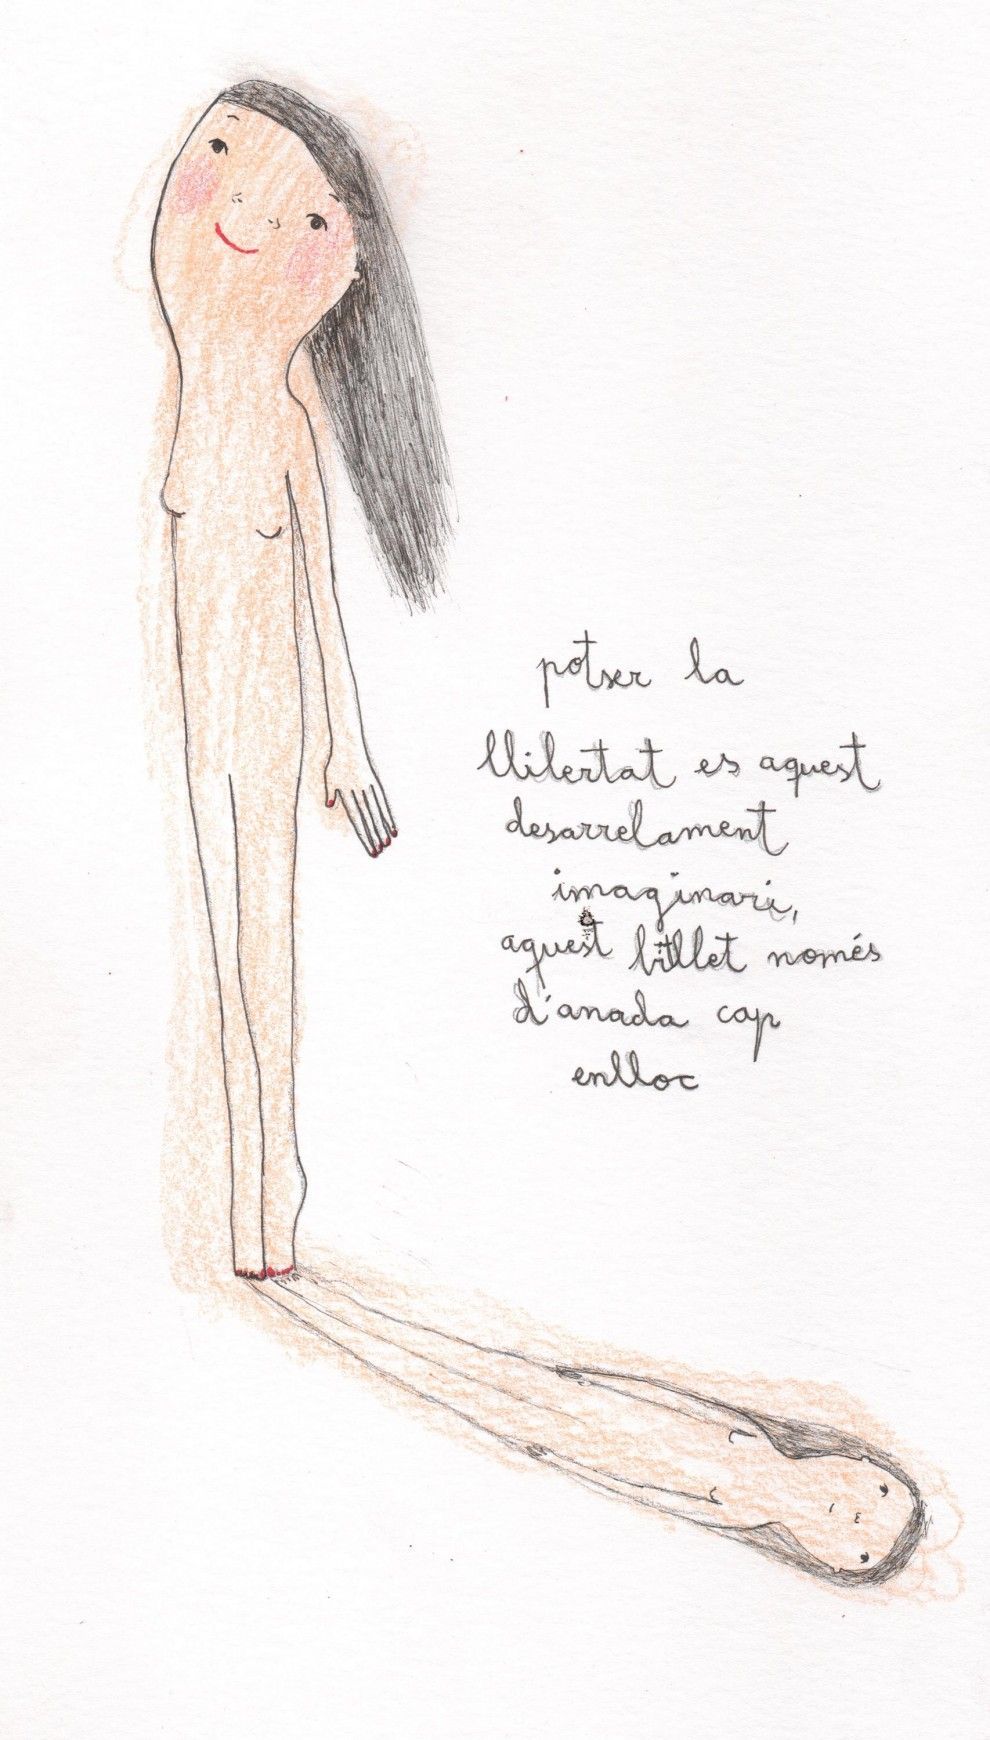 potser la
llilertat es aquest
desarrelament
imaginari,
aquest bitllet només
d'anada cap
enlloc